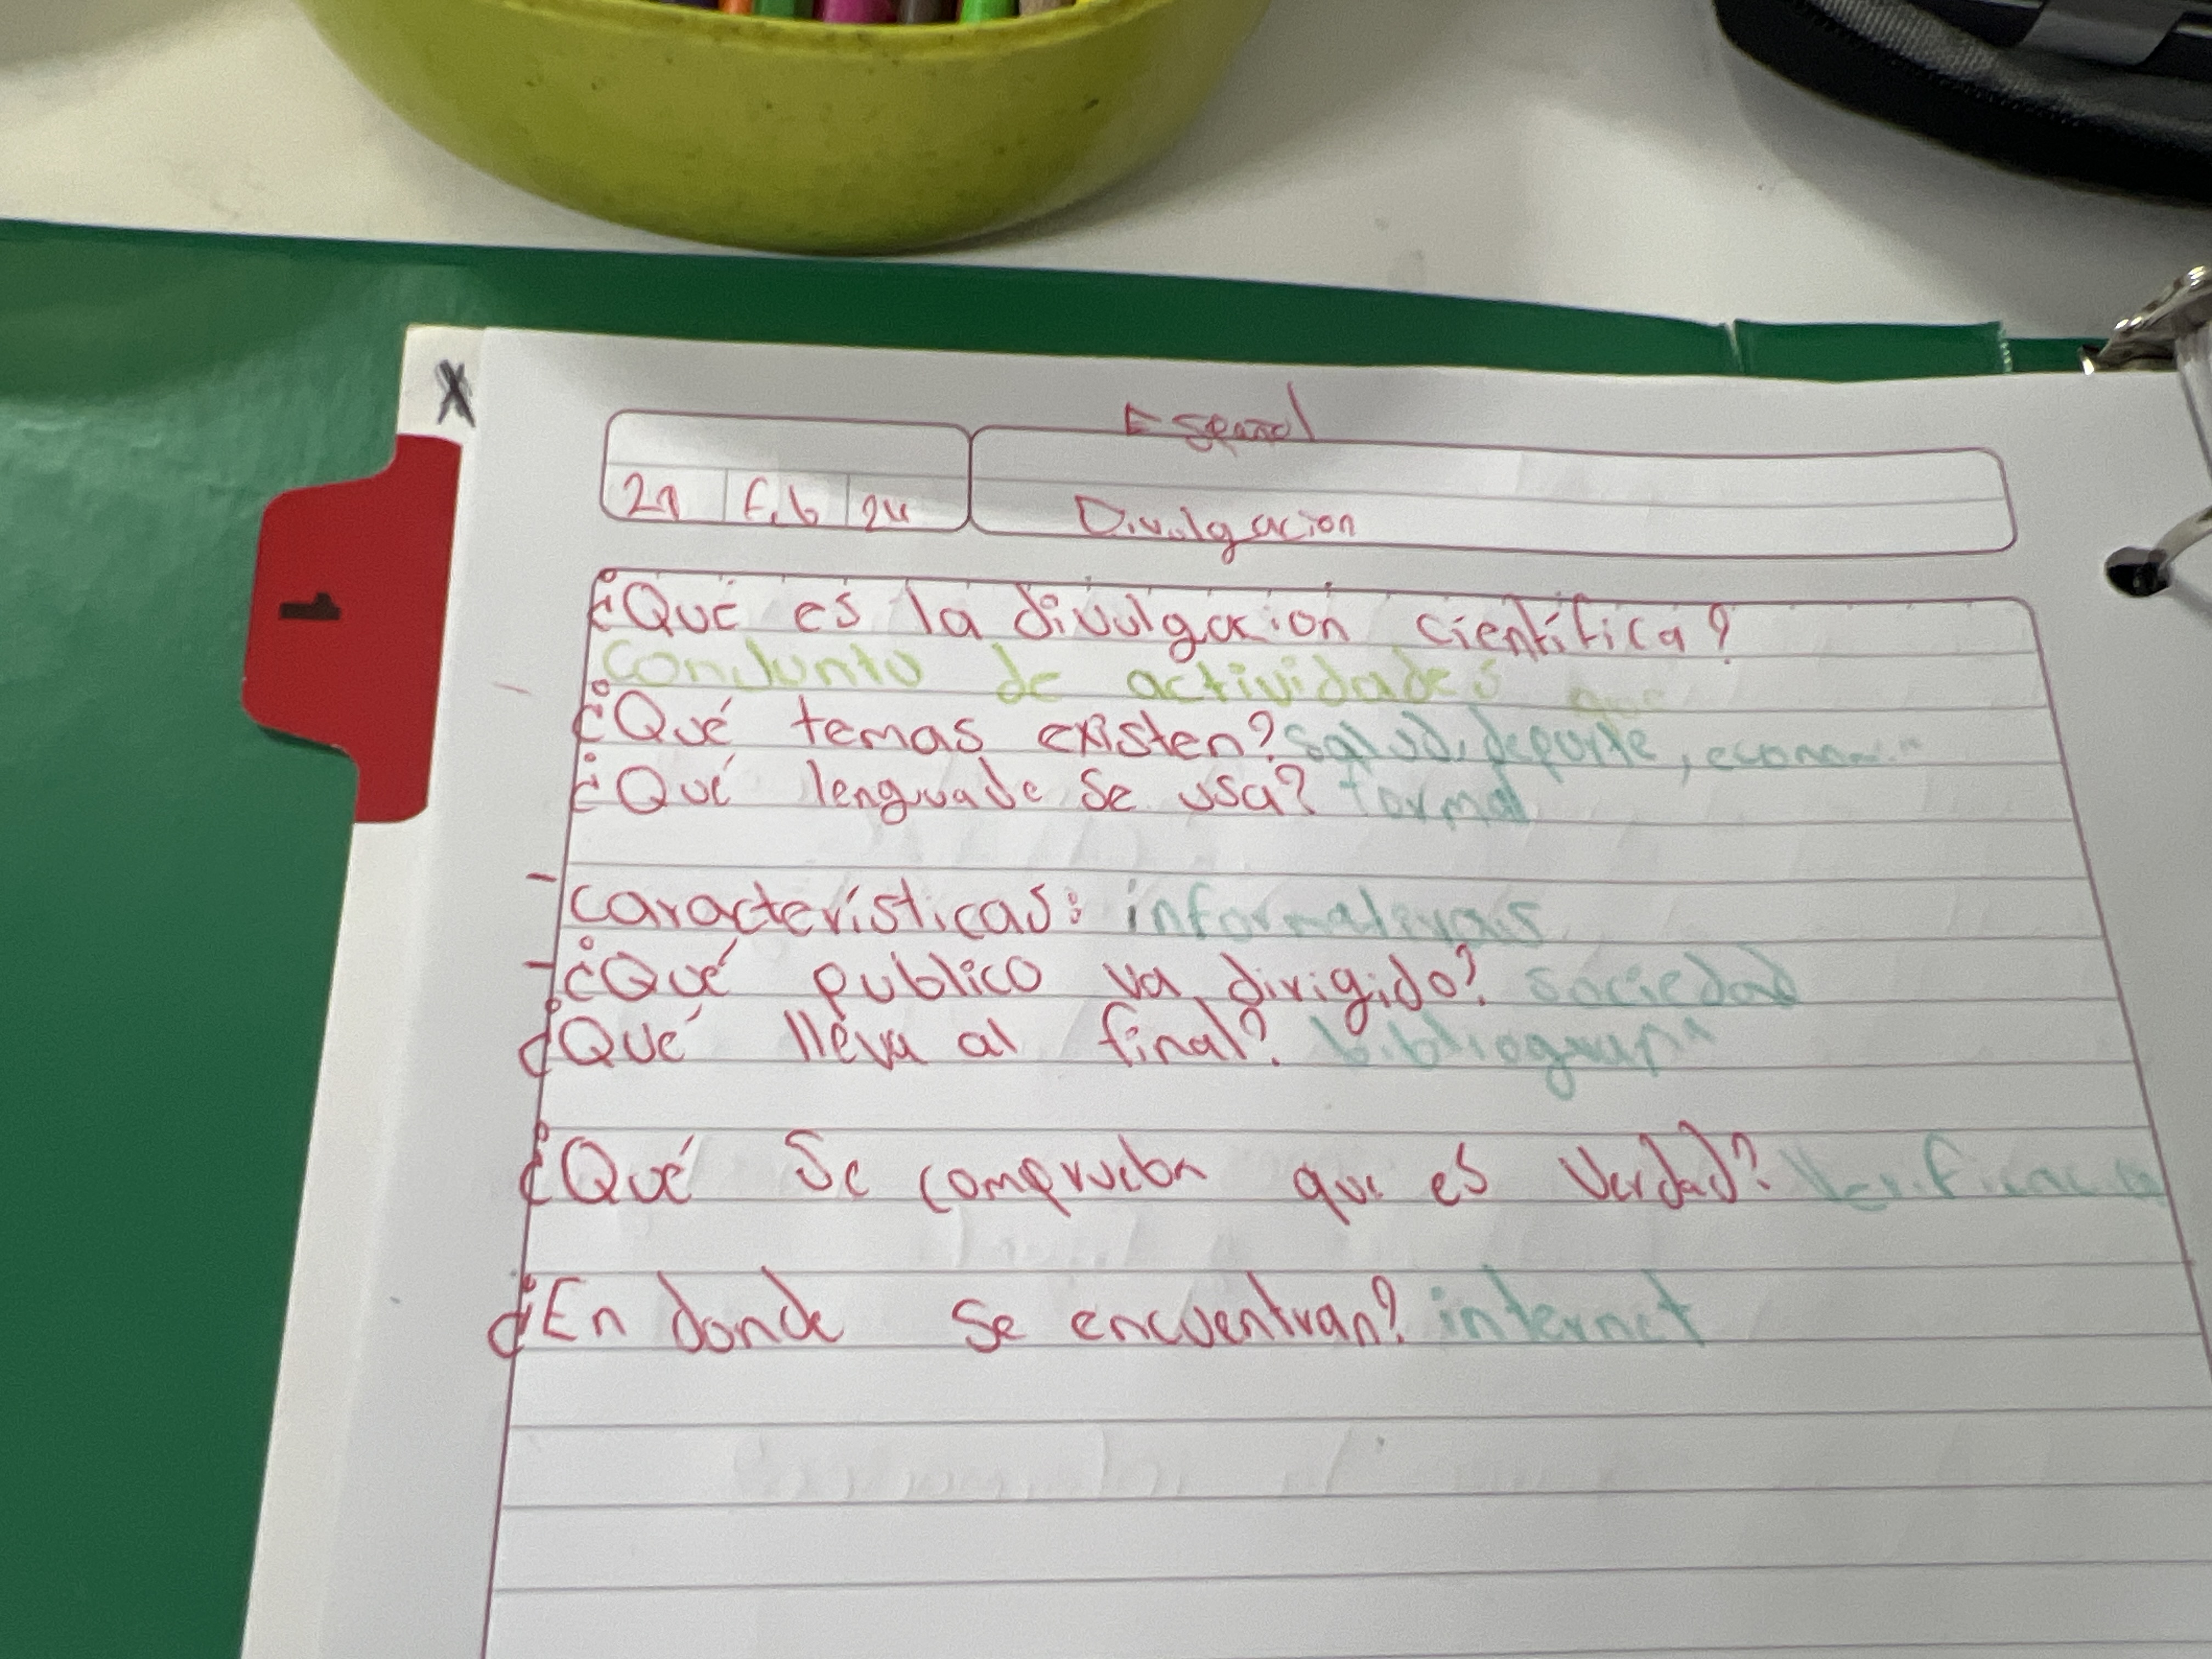 X
Español
21 Feb 24
Divulgacion
1
¿Qué es la divulgacion científica?
Conjunto de actividades que
¿Qué temas existen? Salud, deporte, econom
¿Qué lenguaje se usa? formal
- características:
- ¿Qué publico va dirigido? sociedad
¿Qué lleva al final?
¿Qué Se comprueba que es Verdad?
¿En donde se encuentran? internet